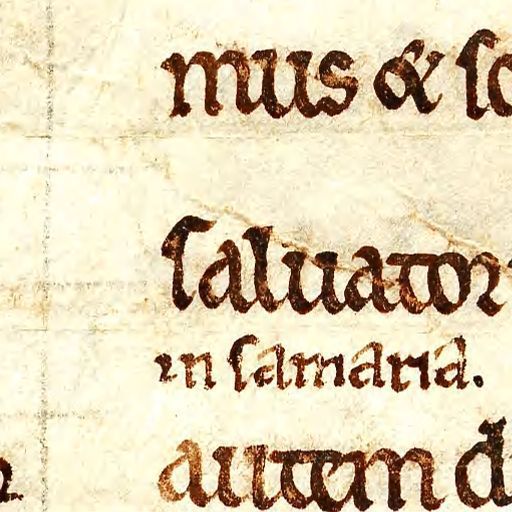 mus & sc
saluator
in samaria.
autem d